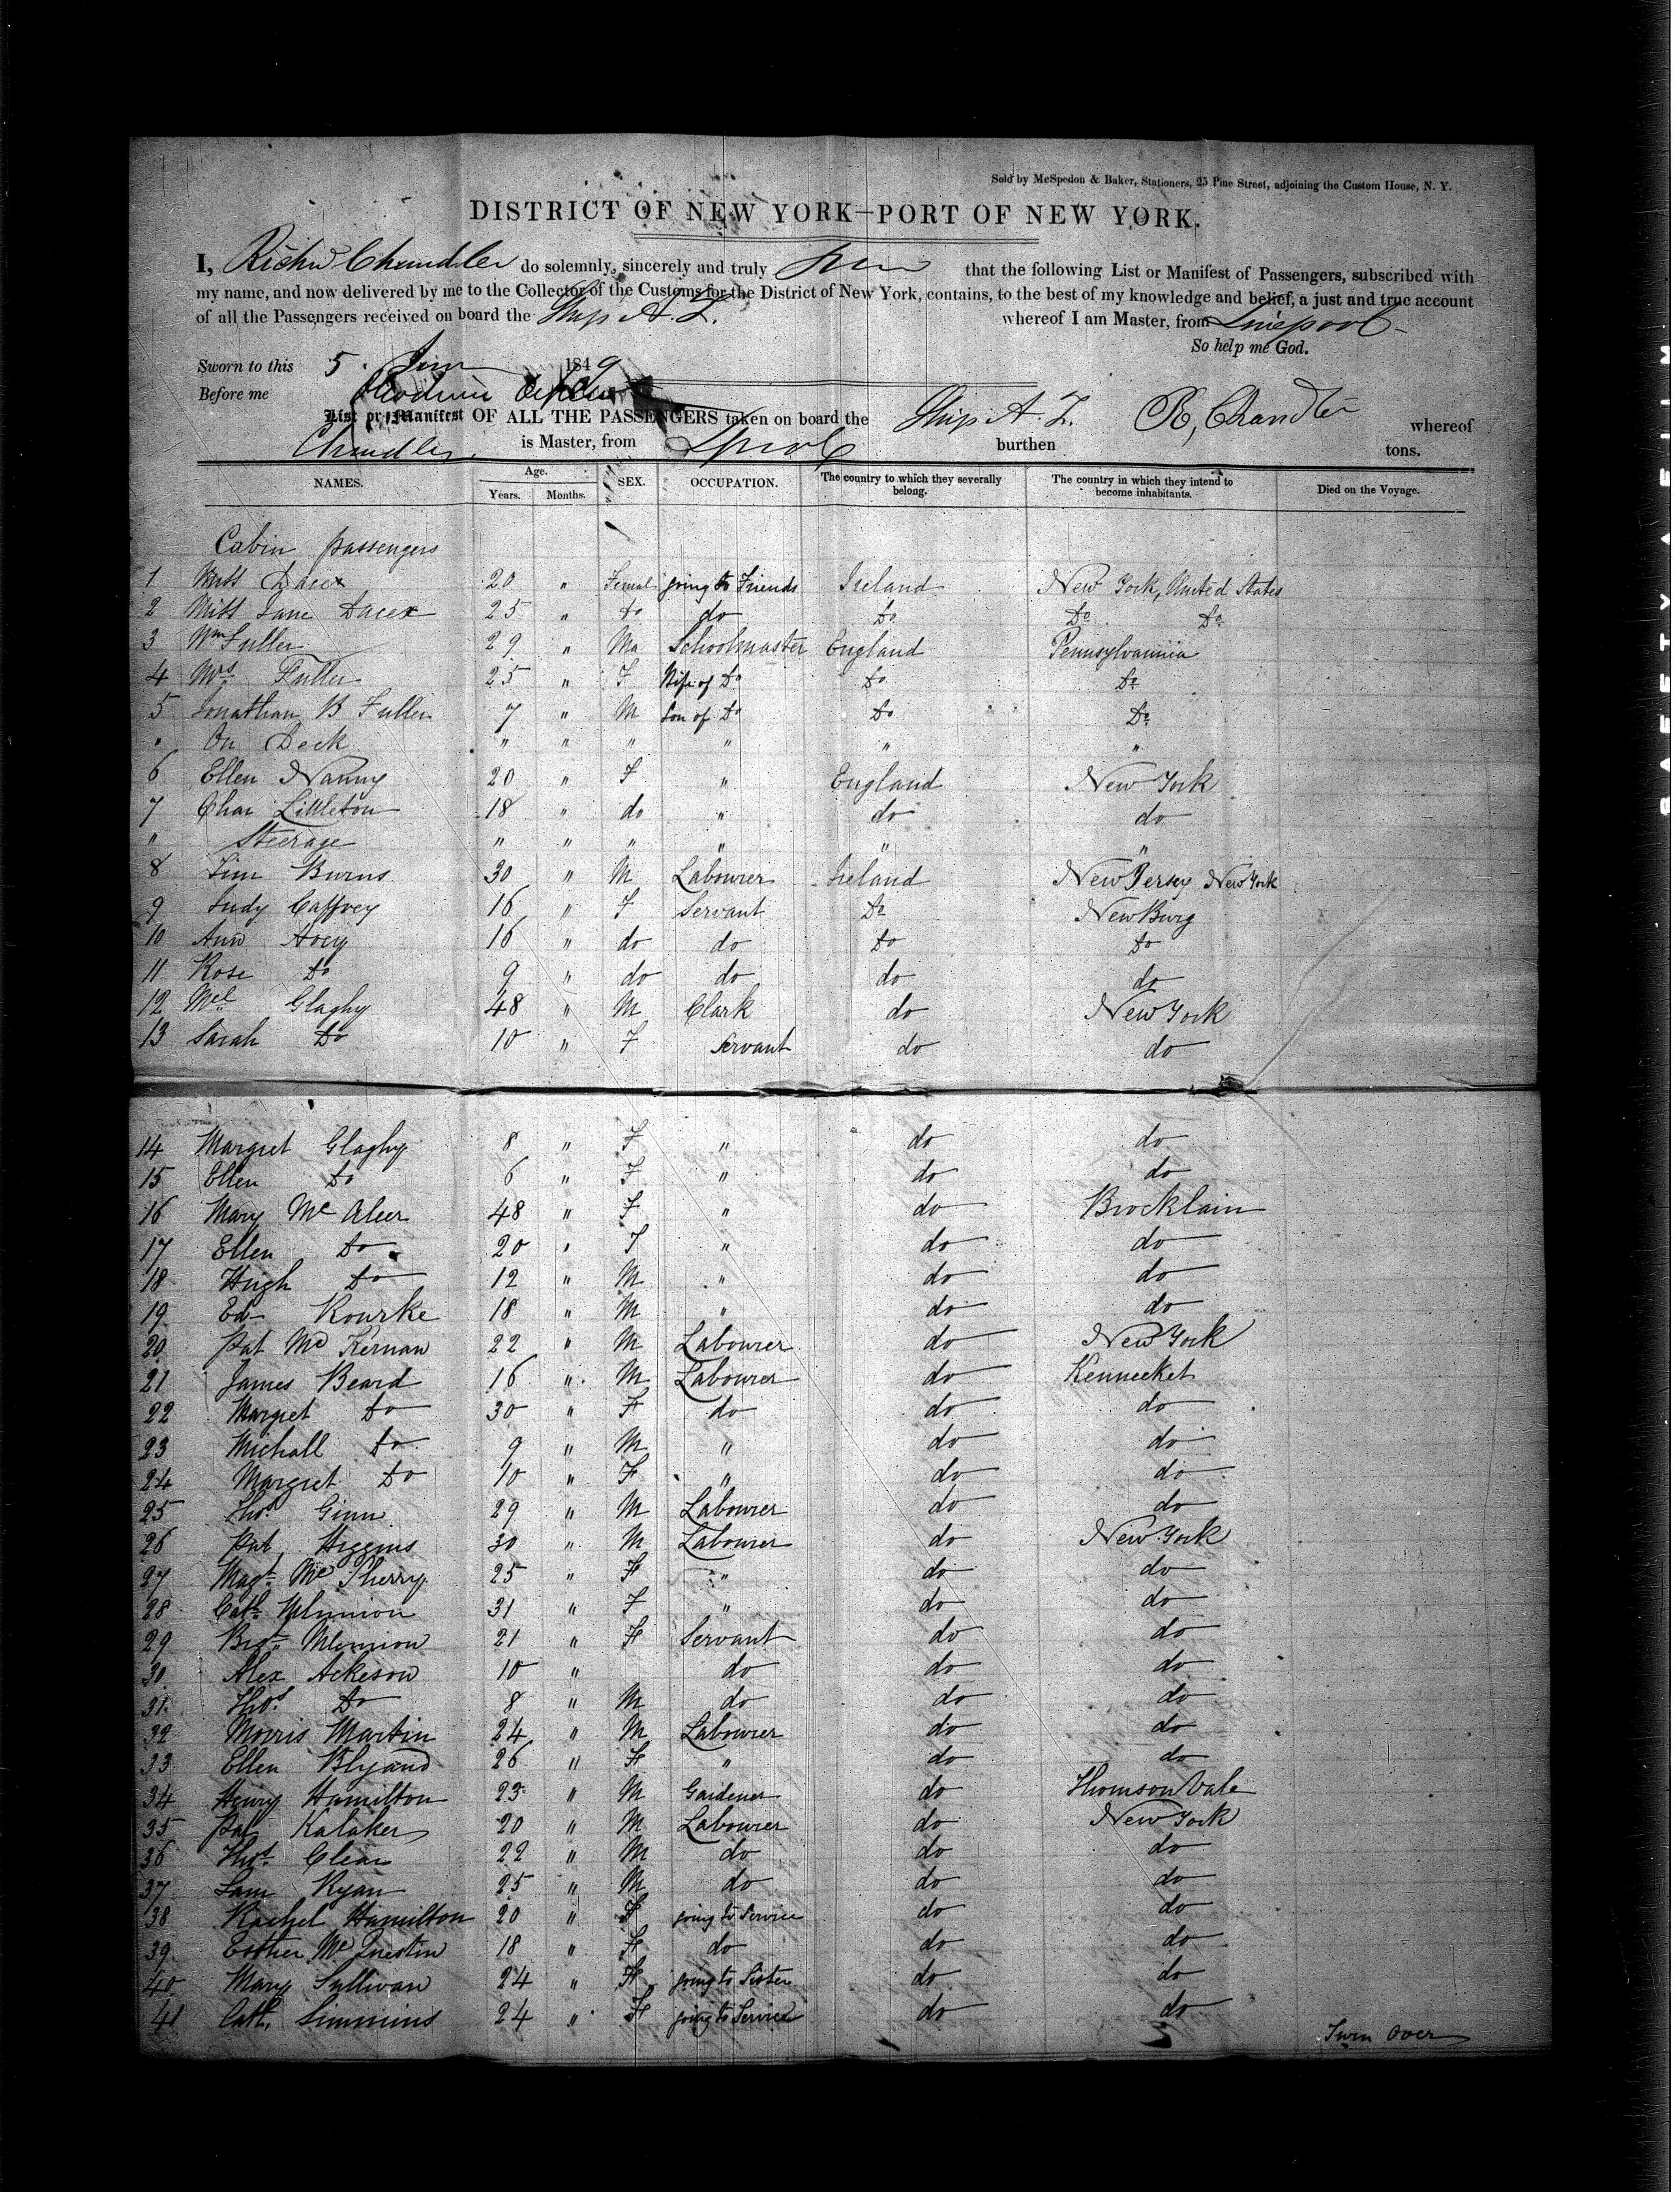 Sold by McSpedon & Baker, Stationers, 25 Pine Street, adjoining the Custom House, N. Y.
DISTRICT OF NEW YORK—PORT OF NEW YORK.
I, Richd Chandler do solemnly, sincerely and truly that the following List or Manifest of Passengers, subscribed with
my name, and now delivered by me to the Collector of the Customs for the District of New York, contains, to the best of my knowledge and belief, a just and true account
of all the Passengers received on board the Ship A. Z. whereof I am Master, from Liverpool
So help me God.
Sworn to this 5 1849
Before me
List or Manifest OF ALL THE PASSENGERS taken on board the Ship A. Z. R, Chandler whereof
Chandler is Master, from Lpool burthen tons.
NAMES. Age. Years. Months. SEX. OCCUPATION. The country to which they severally belong. The country in which they intend to become inhabitants. Died on the Voyage.
Cabin passengers
1 Miss 20 " Femal going to Friends Ireland New York, United States
2 Miss Jane 25 " Do do Do Do Do
3 Wm Fuller 29 " Ma Schoolmaster England Pennsylvannia
4 Mrs Fuller 25 " F Wife of Do Do Do
5 Jonathan B Fuller 7 " M Son of Do Do Do
" On Deck " " " " " "
6 Ellen Nanny 20 " F " England New York
7 Char Littleton 18 " do " do do
" Steerage " " " " " "
8 Tim Burns 30 " M Labourer Ireland New Jersey New York
9 Judy Caffrey 16 " F Servant Do NewBurg
10 Ann Avey 16 " do do Do Do
11 Rose Do 9 " do do do do
12 Mcl Glaghy 48 " M Clark do New York
13 Sarah Do 10 " F Servant do do
14 Margret Glaghy 8 " F " do do
15 Ellen Do 6 " F " do do
16 Mary Mc Aleer 48 " F " do Brocklain
17 Ellen Do 20 " F " do do
18 Hugh Do 12 " M " do do
19 Ed Rourke 18 " M " do do
20 Pat Mc Kernan 22 " M Labourer do New York
21 James Beard 16 " M Labourer do Kennecket
22 Margret Do 30 " F do do do
23 Michall Do 9 " M " do do
24 Margret Do 10 " F " do do
25 Thos Ginn 29 " M Labourer do do
26 Pat Higgins 30 " M Labourer do New York
27 Magt Mc Sherry 25 " F " do do
28 Cath 31 " F " do do
29 21 " F Servant do do
30 Alex Ackeson 10 " do do do
31 Thos Do 8 " M do do do
32 Morris Martin 24 " M Labourer do do
33 Ellen Blyand 26 " F " do do
34 Henry Hamilton 23 " M Gardener do Thomson Vale
35 Pat Kalaker 20 " M Labourer do New York
36 Thos Clear 22 " M do do do
37 Sam Ryan 25 " M do do do
38 Rachel Hamilton 20 " F going to Service do do
39 Esther Mc Questin 18 " F do do do
40 Mary Sullivan 24 " F going to Sister do do
41 Cath. Simmins 24 " F going to Service do do
Turn Over
SAFETY